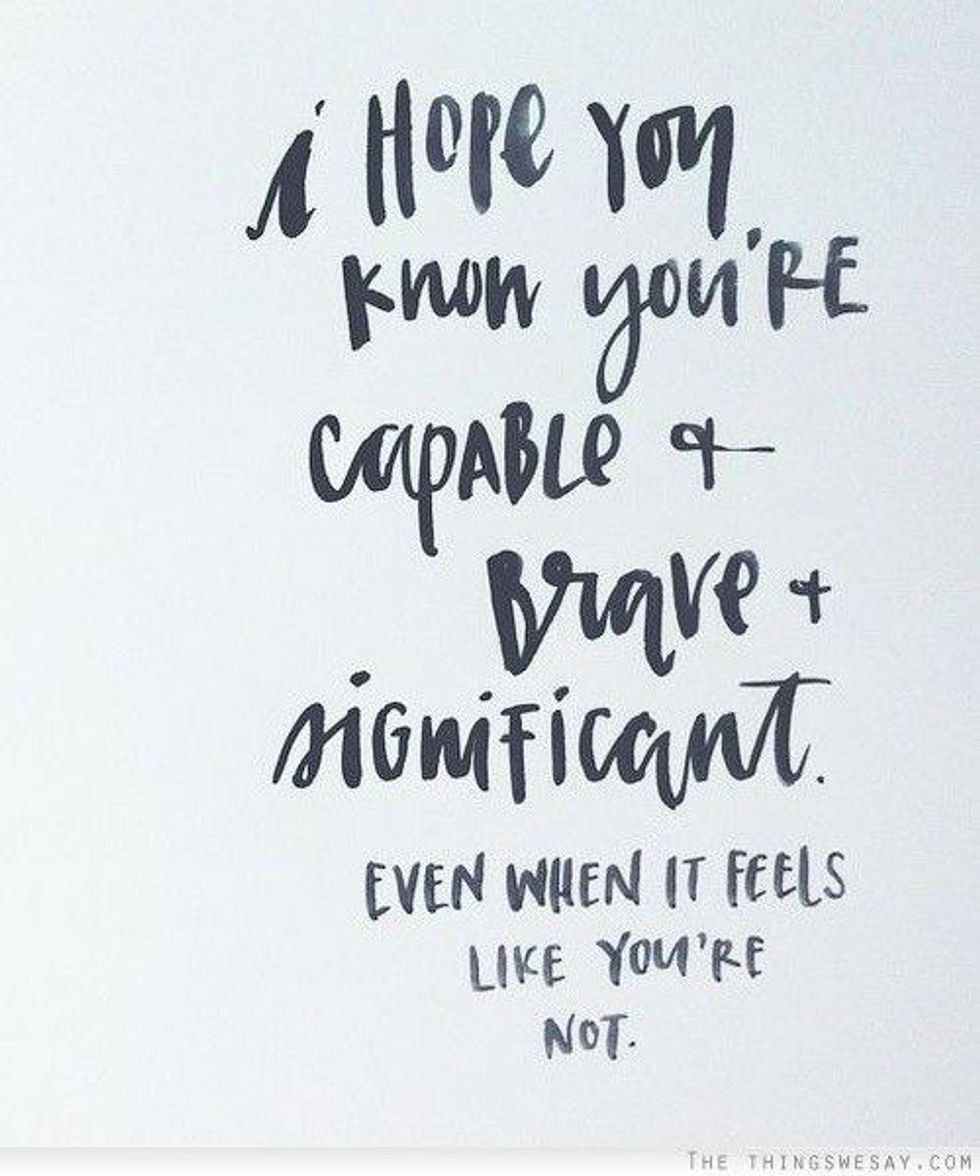 i Hope You
know you'RE
capable +
Brave +
significant.
EVEN WHEN IT FEELS
LIKE YOU'RE
NOT.
THE THINGSWESAY.COM